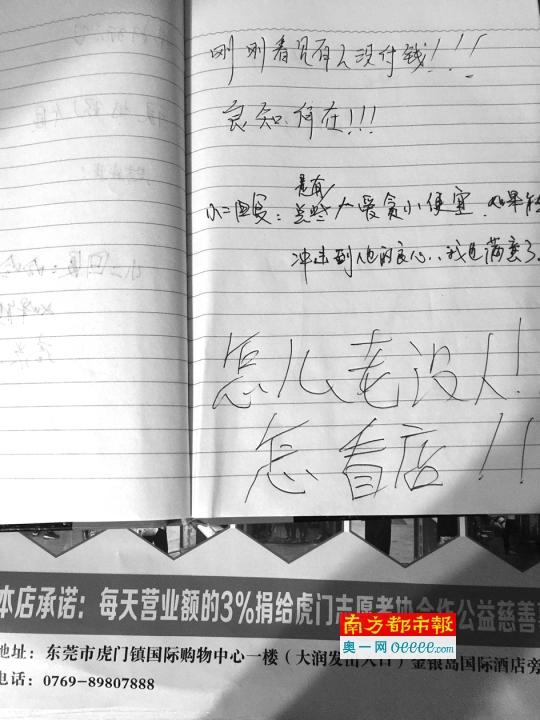 刚刚看见有人没付钱!!!
良知何在!!!
是有
小二回复:总些人爱贪小便宜.如果能
冲击到他的良心..我也满意了.
怎么老没人!
怎看店!!
本店承诺:每天营业额的3%捐给虎门志愿者协会作公益慈善
地址:东莞市虎门镇国际购物中心一楼(大润发出入口)金银岛国际酒店旁
电话:0769-89807888
南方都市報
奥一网 oeeee.com